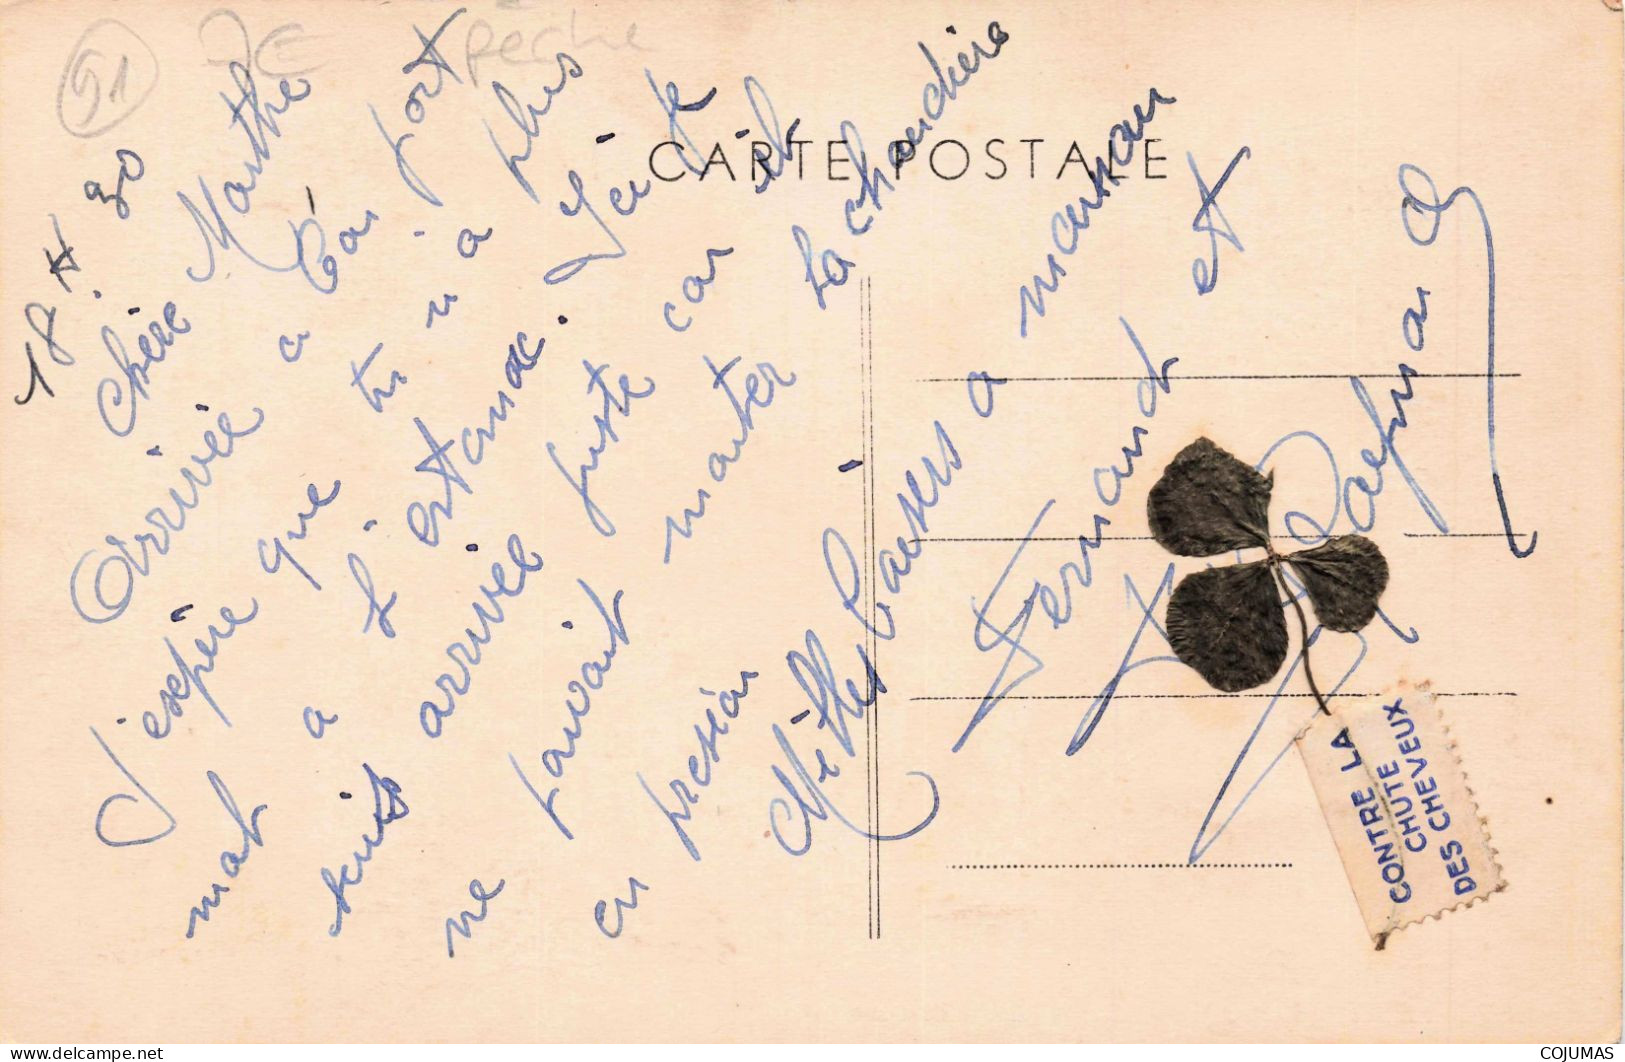 51
pêche
18.X.30
CARTE POSTALE
Chère Marthe
Arrivée a bon port
J'espère que tu n'a plus
mal a l'estomac. Je
suis arrivée juste car il
ne pouvait monter la chaudière
en pression
Milles baisers a maman
Fernand et
Raymond
CONTRE LA
CHUTE
DES CHEVEUX
COJUMAS